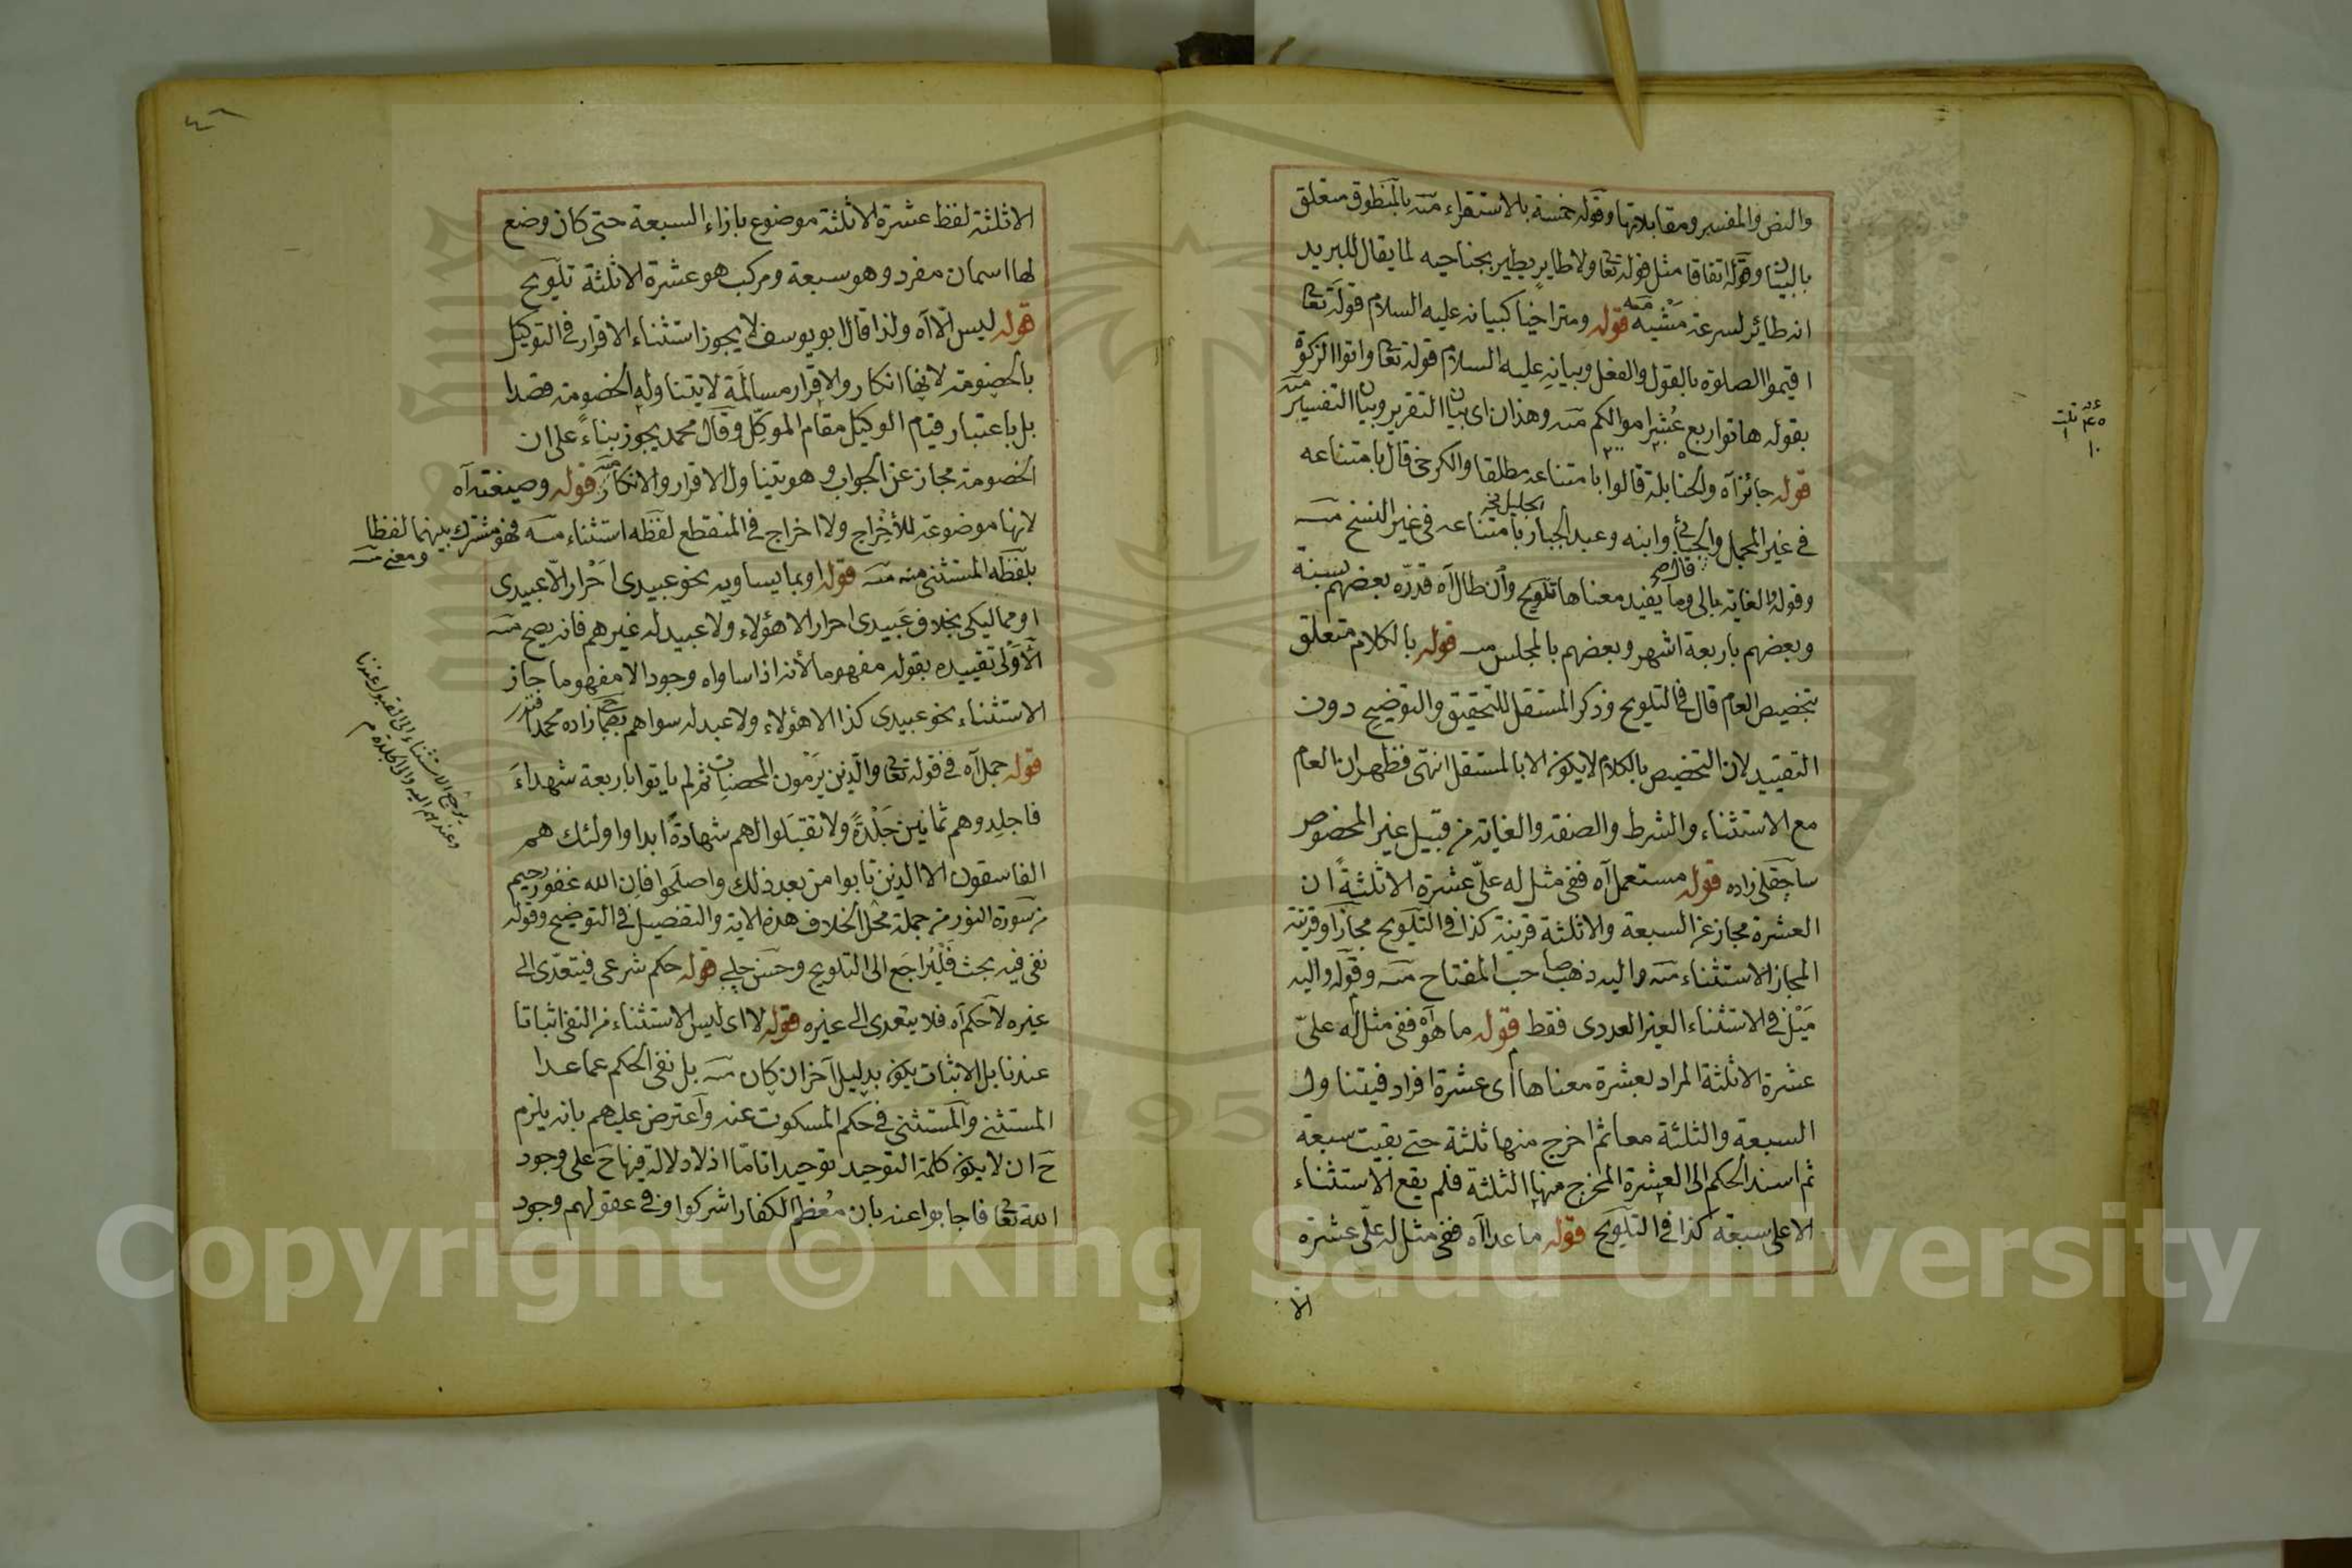 والنص والمفسر ومقابلاتها وقوله خمسة بالاستقراء منه بالمنطوق متعلق
بالبيان وقوله اتفاقا مثل قوله تعا ولا طاير يطير بجناحيه لما يقال للبريد
انه طائر لسرعة مشيه منه قوله ومتراخيا كبيانه عليه السلام قوله تعا
اقيموا الصلوة بالقول والفعل وبيانه عليه السلام قوله تعا واتوا الزكوة
بقوله هاتوا ربع عشر اموالكم منه وهذان اى بيان التقرير وبيان التفسير منه
قوله جائز آه والحنابلة قالوا بامتناعه مطلقا والكرخى قال بامتناعه
فى غير المجمل والجبائى وابنه وعبد الجبار بامتناعه فى غير النسخ منه
وقوله والغاية بالى وما يفيد معناها تلويح وان طال آه قدره بعضهم بسنة
وبعضهم باربعة اشهر وبعضهم بالمجلس منه قوله بالكلام متعلق
بتخصيص العام قال فى التلويح وذكر المستقل للتحقيق والتوضيح دون
التقييد لان التخصيص بالكلام لا يكون الا بالمستقل انتهى فظهر ان العام
مع الاستثناء والشرط والصفة والغاية من قبيل غير المخصوص
ساجقلى زاده قوله مستعمل آه ففى مثل له علىّ عشرة الا ثلثة ان
العشرة مجاز عن السبعة والا ثلثة قرينة كذا فى التلويح مجازا وقرينة
المجاز الاستثناء منه واليه ذهب صاحب المفتاح منه وقوله واليه
ميل فى الاستثناء الغير العددى فقط قوله ما هو آه ففى مثل له علىّ
عشرة الا ثلثة المراد بعشرة معناها اى عشرة افراد فيتناول
السبعة والثلثة معا ثم اخرج منها ثلثة حتى بقيت سبعة
ثم اسند الحكم الى العشرة المخرج منها الثلثة فلم يقع الاستثناء
الا على سبعة كذا فى التلويح قوله ما عدا آه ففى مثل له علىّ عشرة
الا
الا ثلثة لفظ عشرة الا ثلثة موضوع بازاء السبعة حتى كان وضع
لها اسمان مفرد وهو سبعة ومركب هو عشرة الا ثلثة تلويح
قوله ليس الا آه ولذا قال ابو يوسف لا يجوز استثناء الاقرار فى التوكيل
بالخصومة لانها انكار والاقرار مسالمة لا يتناوله الخصومة قصدا
بل باعتبار قيام الوكيل مقام الموكل وقال محمد يجوز بناءً على ان
الخصومة مجاز عن الجواب وهو يتناول الاقرار والانكار منه قوله وصيغته آه
لانها موضوعة للأخراج ولا اخراج فى المنقطع لفظه استثناء منه فهو مشترك بينهما لفظا
ومعنى منه
بلفظه المستثنى منه منه قوله او بما يساويه نحو عبيدى احرار الا عبيدى
او مماليكى بخلاف عبيدى احرار الا هؤلاء ولا عبيد له غيرهم فانه يصح منه
الاولى تقييده بقوله مفهوما لأنه اذا ساواه وجودا لا مفهوما جاز
الاستثناء نحو عبيدى كذا الا هؤلاء ولا عبد له سواهم زاده محمد
قوله جمل آه فى قوله تعا والذين يرمون المحصنات ثم لم يأتوا باربعة شهداءَ
فاجلدوهم ثمانين جلدةً ولا تقبلوا لهم شهادةً ابدا واولئك هم
الفاسقون الا الذين تابوا من بعد ذلك واصلحوا فان الله غفور رحيم
من سورة النور من جملة محل الخلاف هذه الاية والتفصيل فى التوضيح وقوله
نفى فيه بحث فليراجع الى التلويح وحسن چلبى قوله حكم شرعى فيتعدى الى
غيره لا حكم آه فلا يتعدى الى غيره قوله لا اى ليس الاستثناء من النفى اثباتا
عندنا بل الاثبات يكون بدليل آخر ان كان منه بل نفى الحكم عما عدا
المستثنى والمستثنى فى حكم المسكوت عنه واعترض عليهم بانه يلزم
ح ان لا يكون كلمة التوحيد توحيدا تاما اذ لا دلالة فيها ح على وجود
الله تعا فاجابوا عنه بان معظم الكفار اشركوا وفى عقولهم وجود
يرجع الاستثناء الى القبول عندنا
وعندهم اليه والى الجلدة م
Copyright © King Saud University